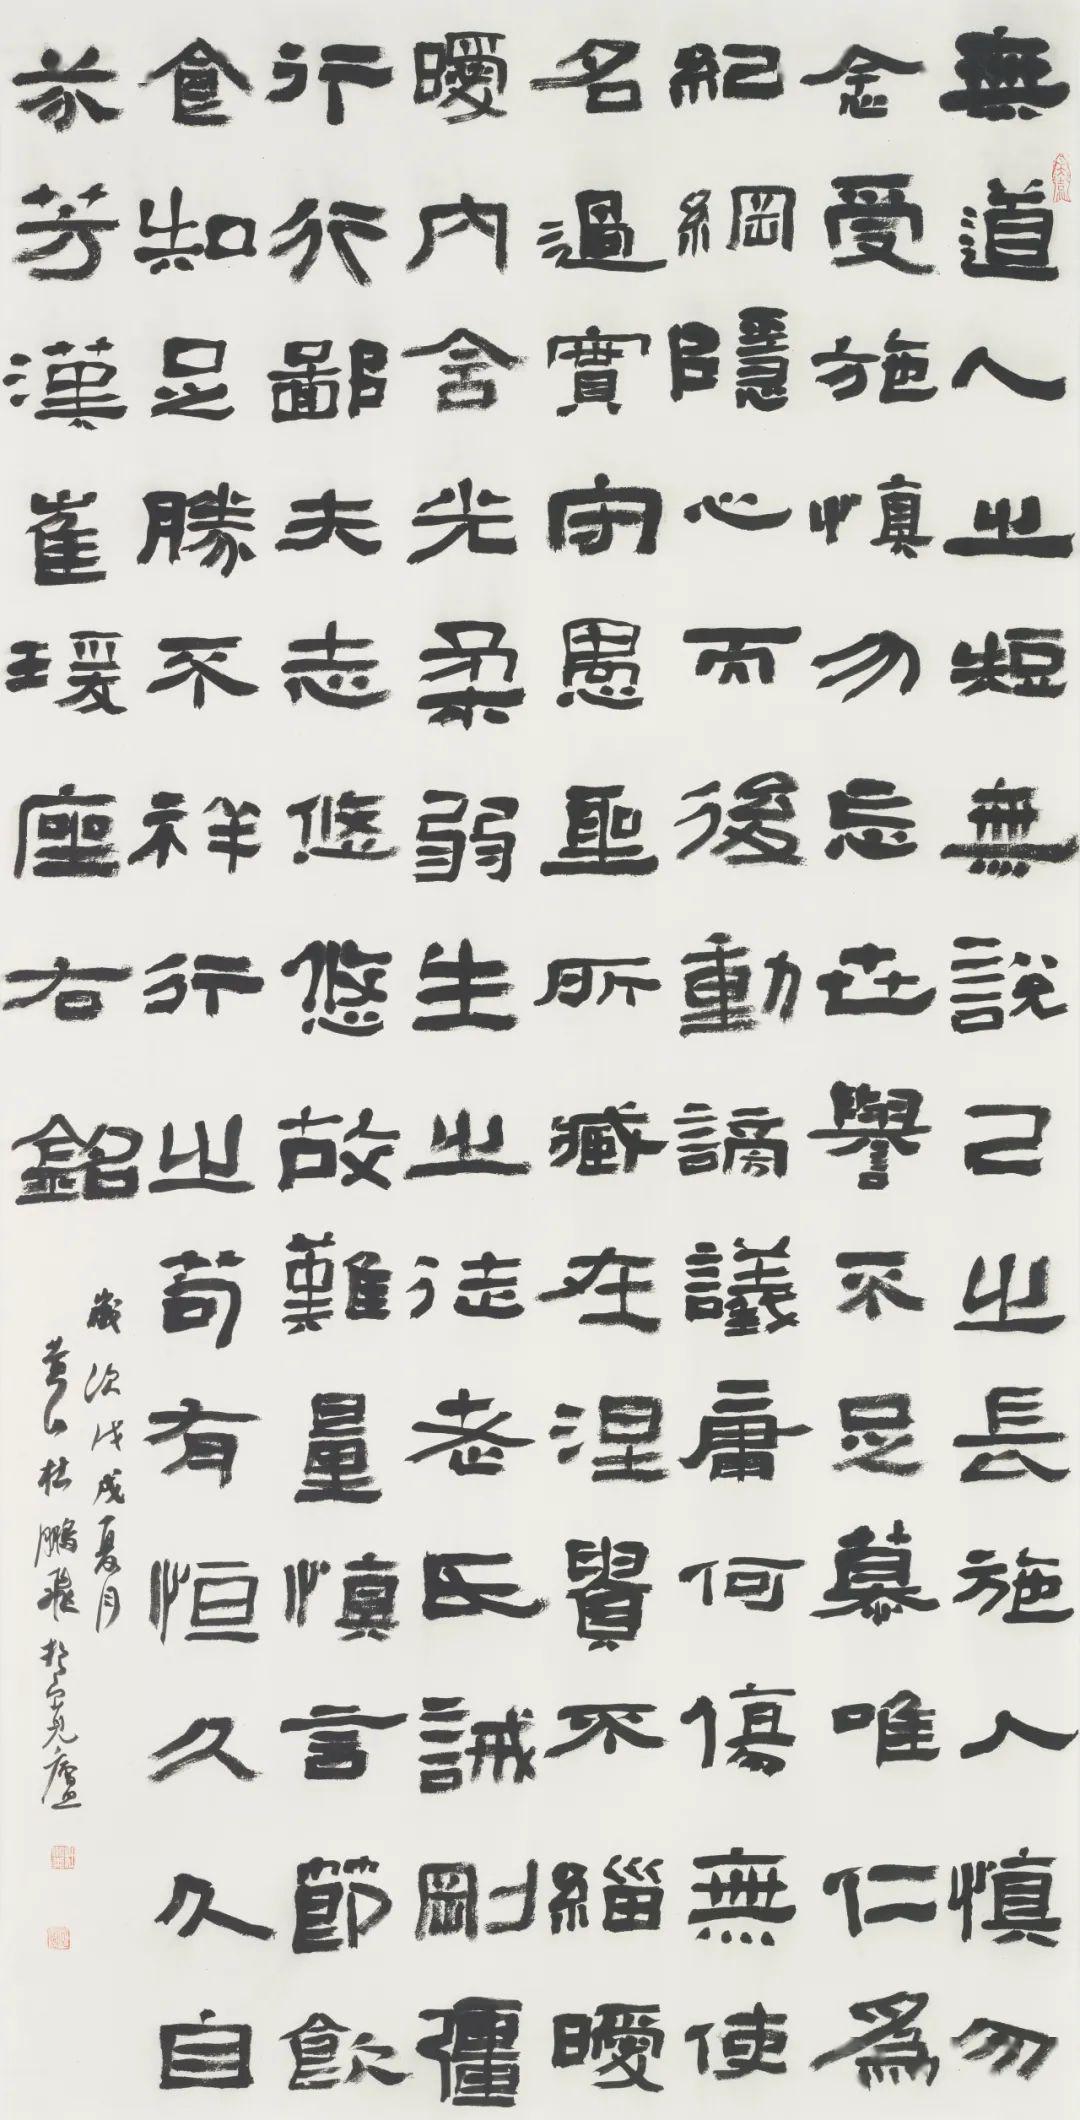 無道人之短無說己之長施人慎勿
念受施慎勿忘世譽不足慕唯仁爲
紀綱隱心而後動謗議庸何傷無使
名過實守愚聖所臧在涅貴不緇曖
曖內含光柔弱生之徒老氏誡剛彊
行行鄙夫志悠悠故難量慎言節飲
食知足勝不祥行之苟有恒久久自
芬芳漢崔瑗座右銘
歲次戊戌夏月
黃山杜鵬飛於寬廬